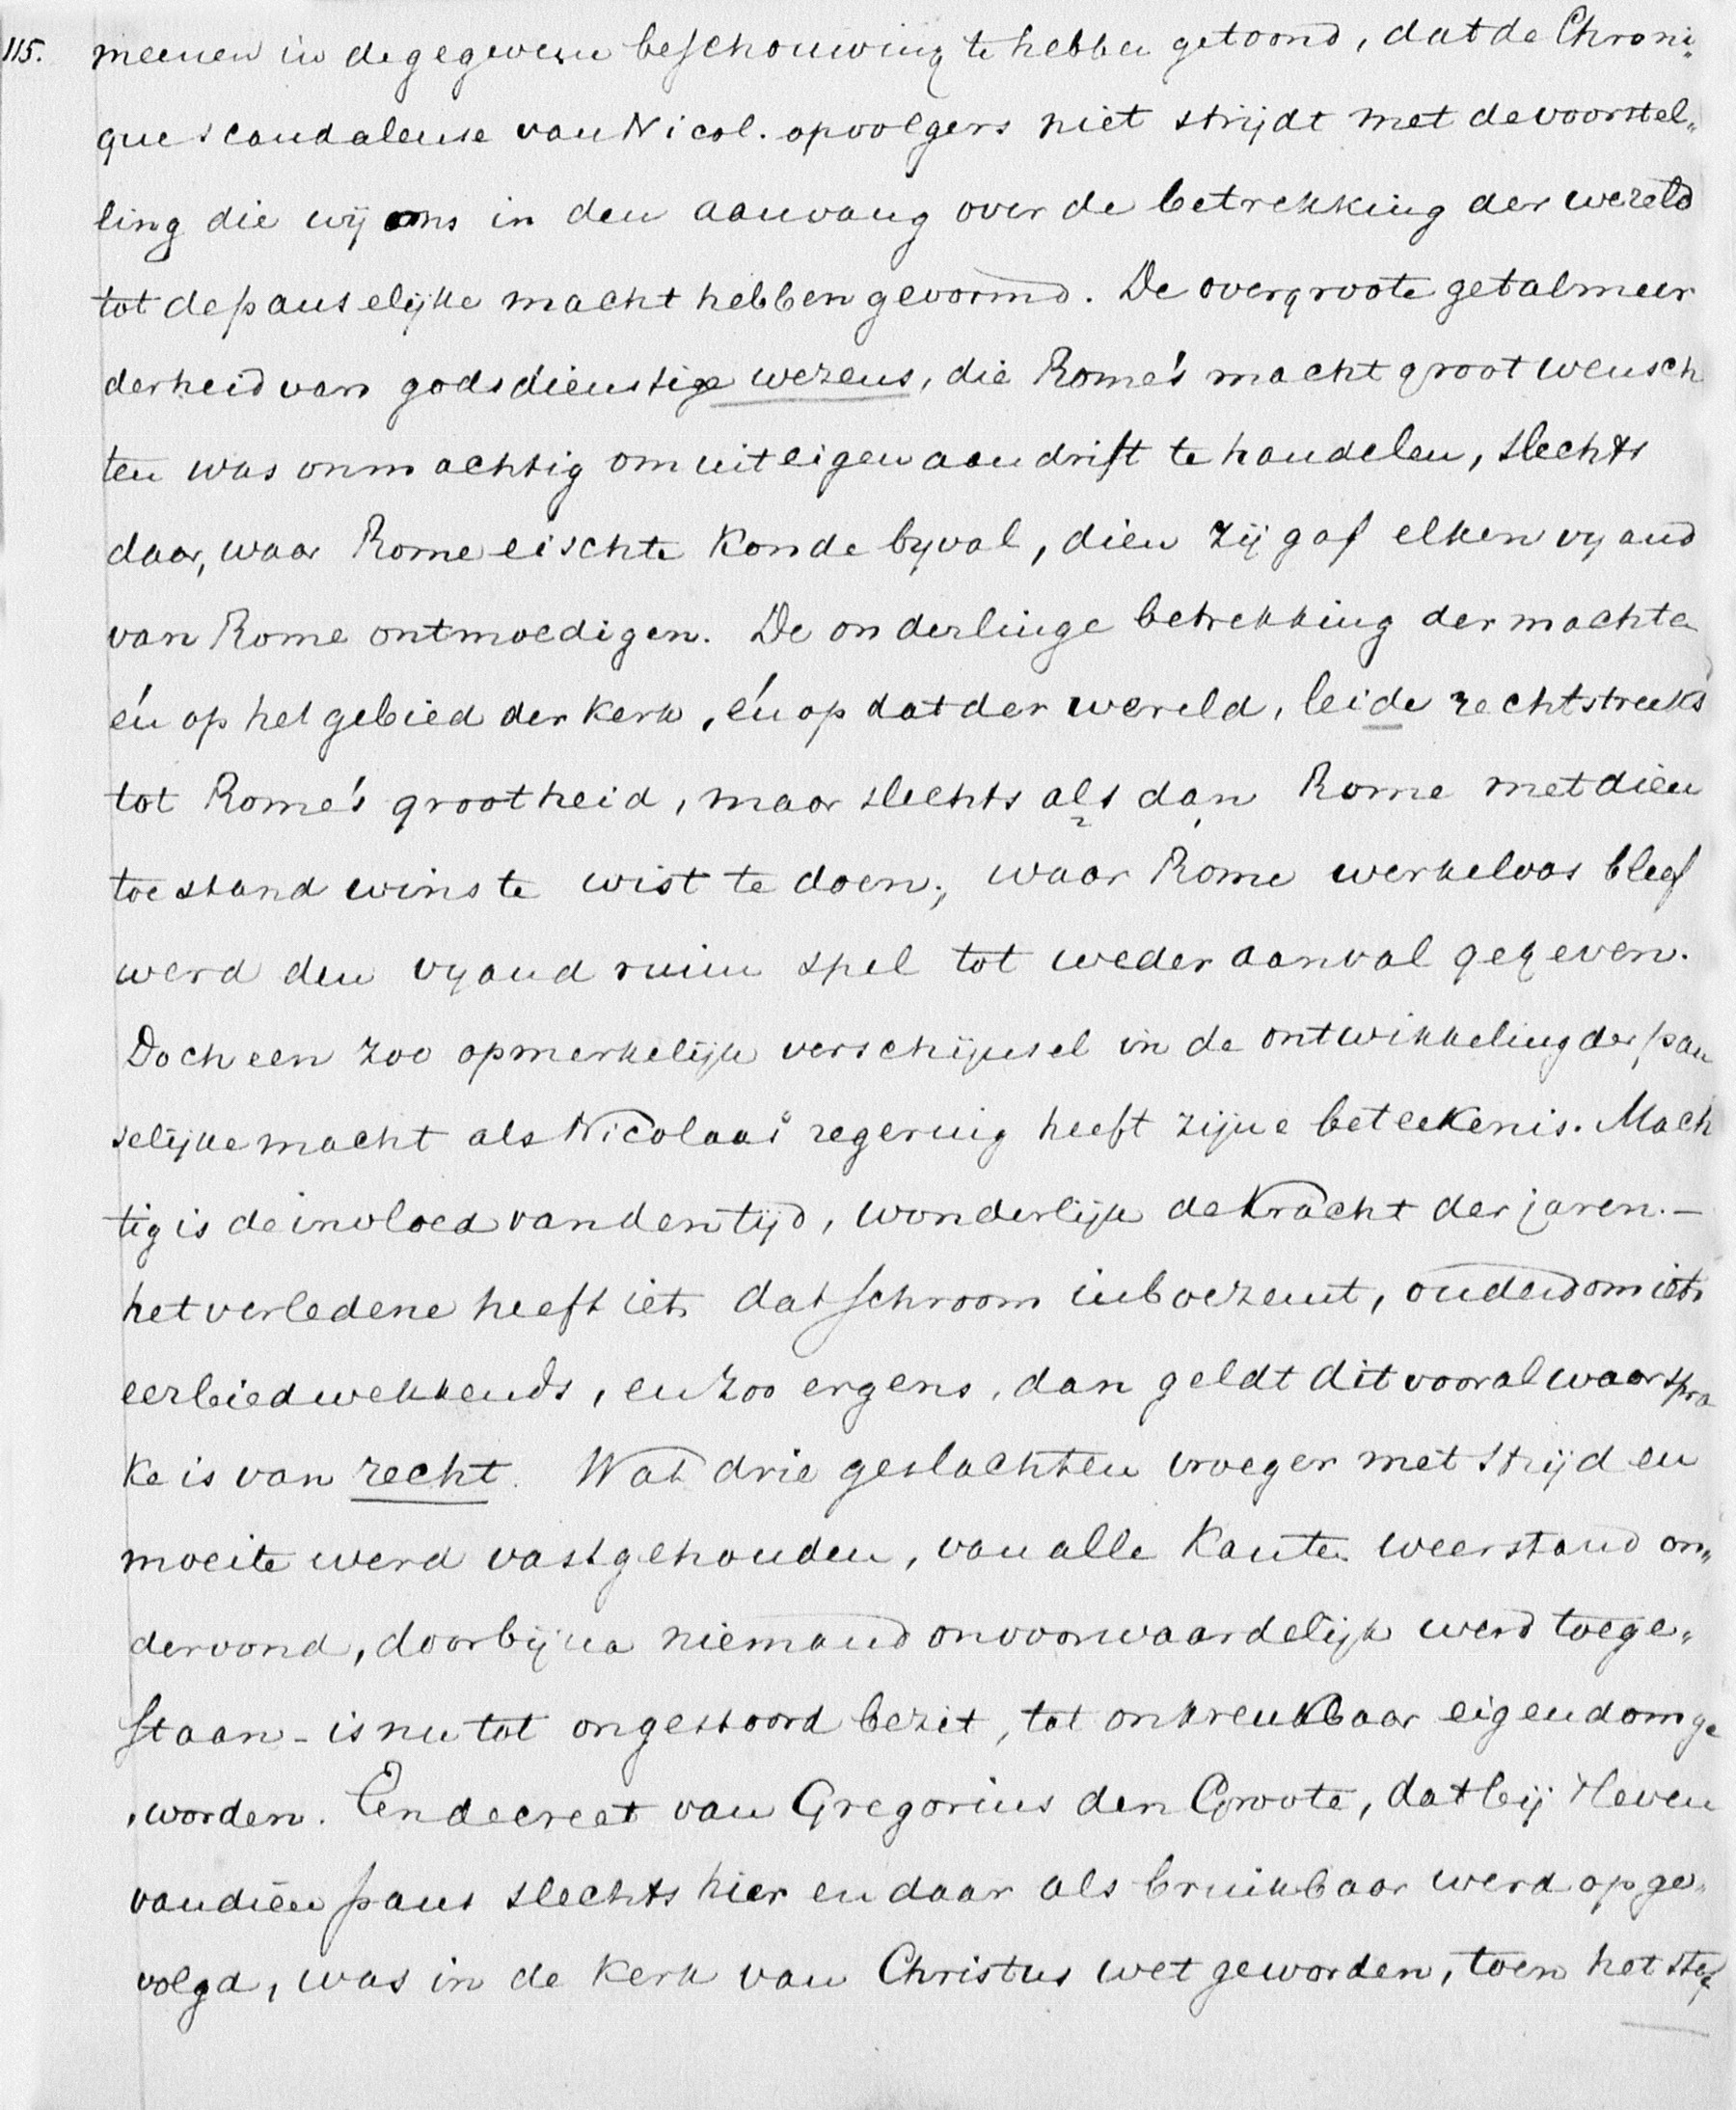 115. meenen in de gegeven beschouwing te hebben getoond, dat de Chroni„
que scandaleuse van Nicol. opvolgers niet strijdt met de voorstel„
ling die wij ons in den aanvang over de betrekking der wereld
tot de pauselijke macht hebben gevormd. De overgroote getalmeer
derheid van godsdienstige wezens, die Rome's macht groot wensch
ten was onmachtig om uit eigen aandrift te handelen, slechts
daar, waar Rome eischte konde byval, dien zij gaf elken vyand
van Rome ontmoedigen. De onderlinge betrekking der machten
én op het gebied der kerk, én op dat der wereld, leide rechtstreeks
tot Rome's grootheid, maar slechts als dan Rome met dien
toestand winste wist te doen; waar Rome werkeloos bleef
werd den vyand ruim spel tot weder aanval gegeven.
Doch een zoo opmerkelijk verschijnsel in de ontwikkeling der pau
selijke macht als Nicolaas regering heeft zijne beteekenis. Mach
tig is de invloed van den tijd, wonderlijk de kracht der jaren. –
het verledene heeft iets dat schroom inboezemt, ouderdom iets
eerbiedwekkends, en zoo ergens, dan geldt dit vooral waar spra
ke is van recht. Wat drie geslachten vroeger met strijd en
moeite werd vastgehouden, van alle kanten weerstand on„
dervond, door bijna niemand onvoorwaardelijk werd toege„
staan – is nu tot ongestoord bezit, tot onkreukbaar eigendom ge
worden. Een decreet van Gregorius den Groote, dat bij 't leven
van dien paus slechts hier en daar als bruikbaar werd opge„
volgd, was in de kerk van Christus wet geworden, toen het